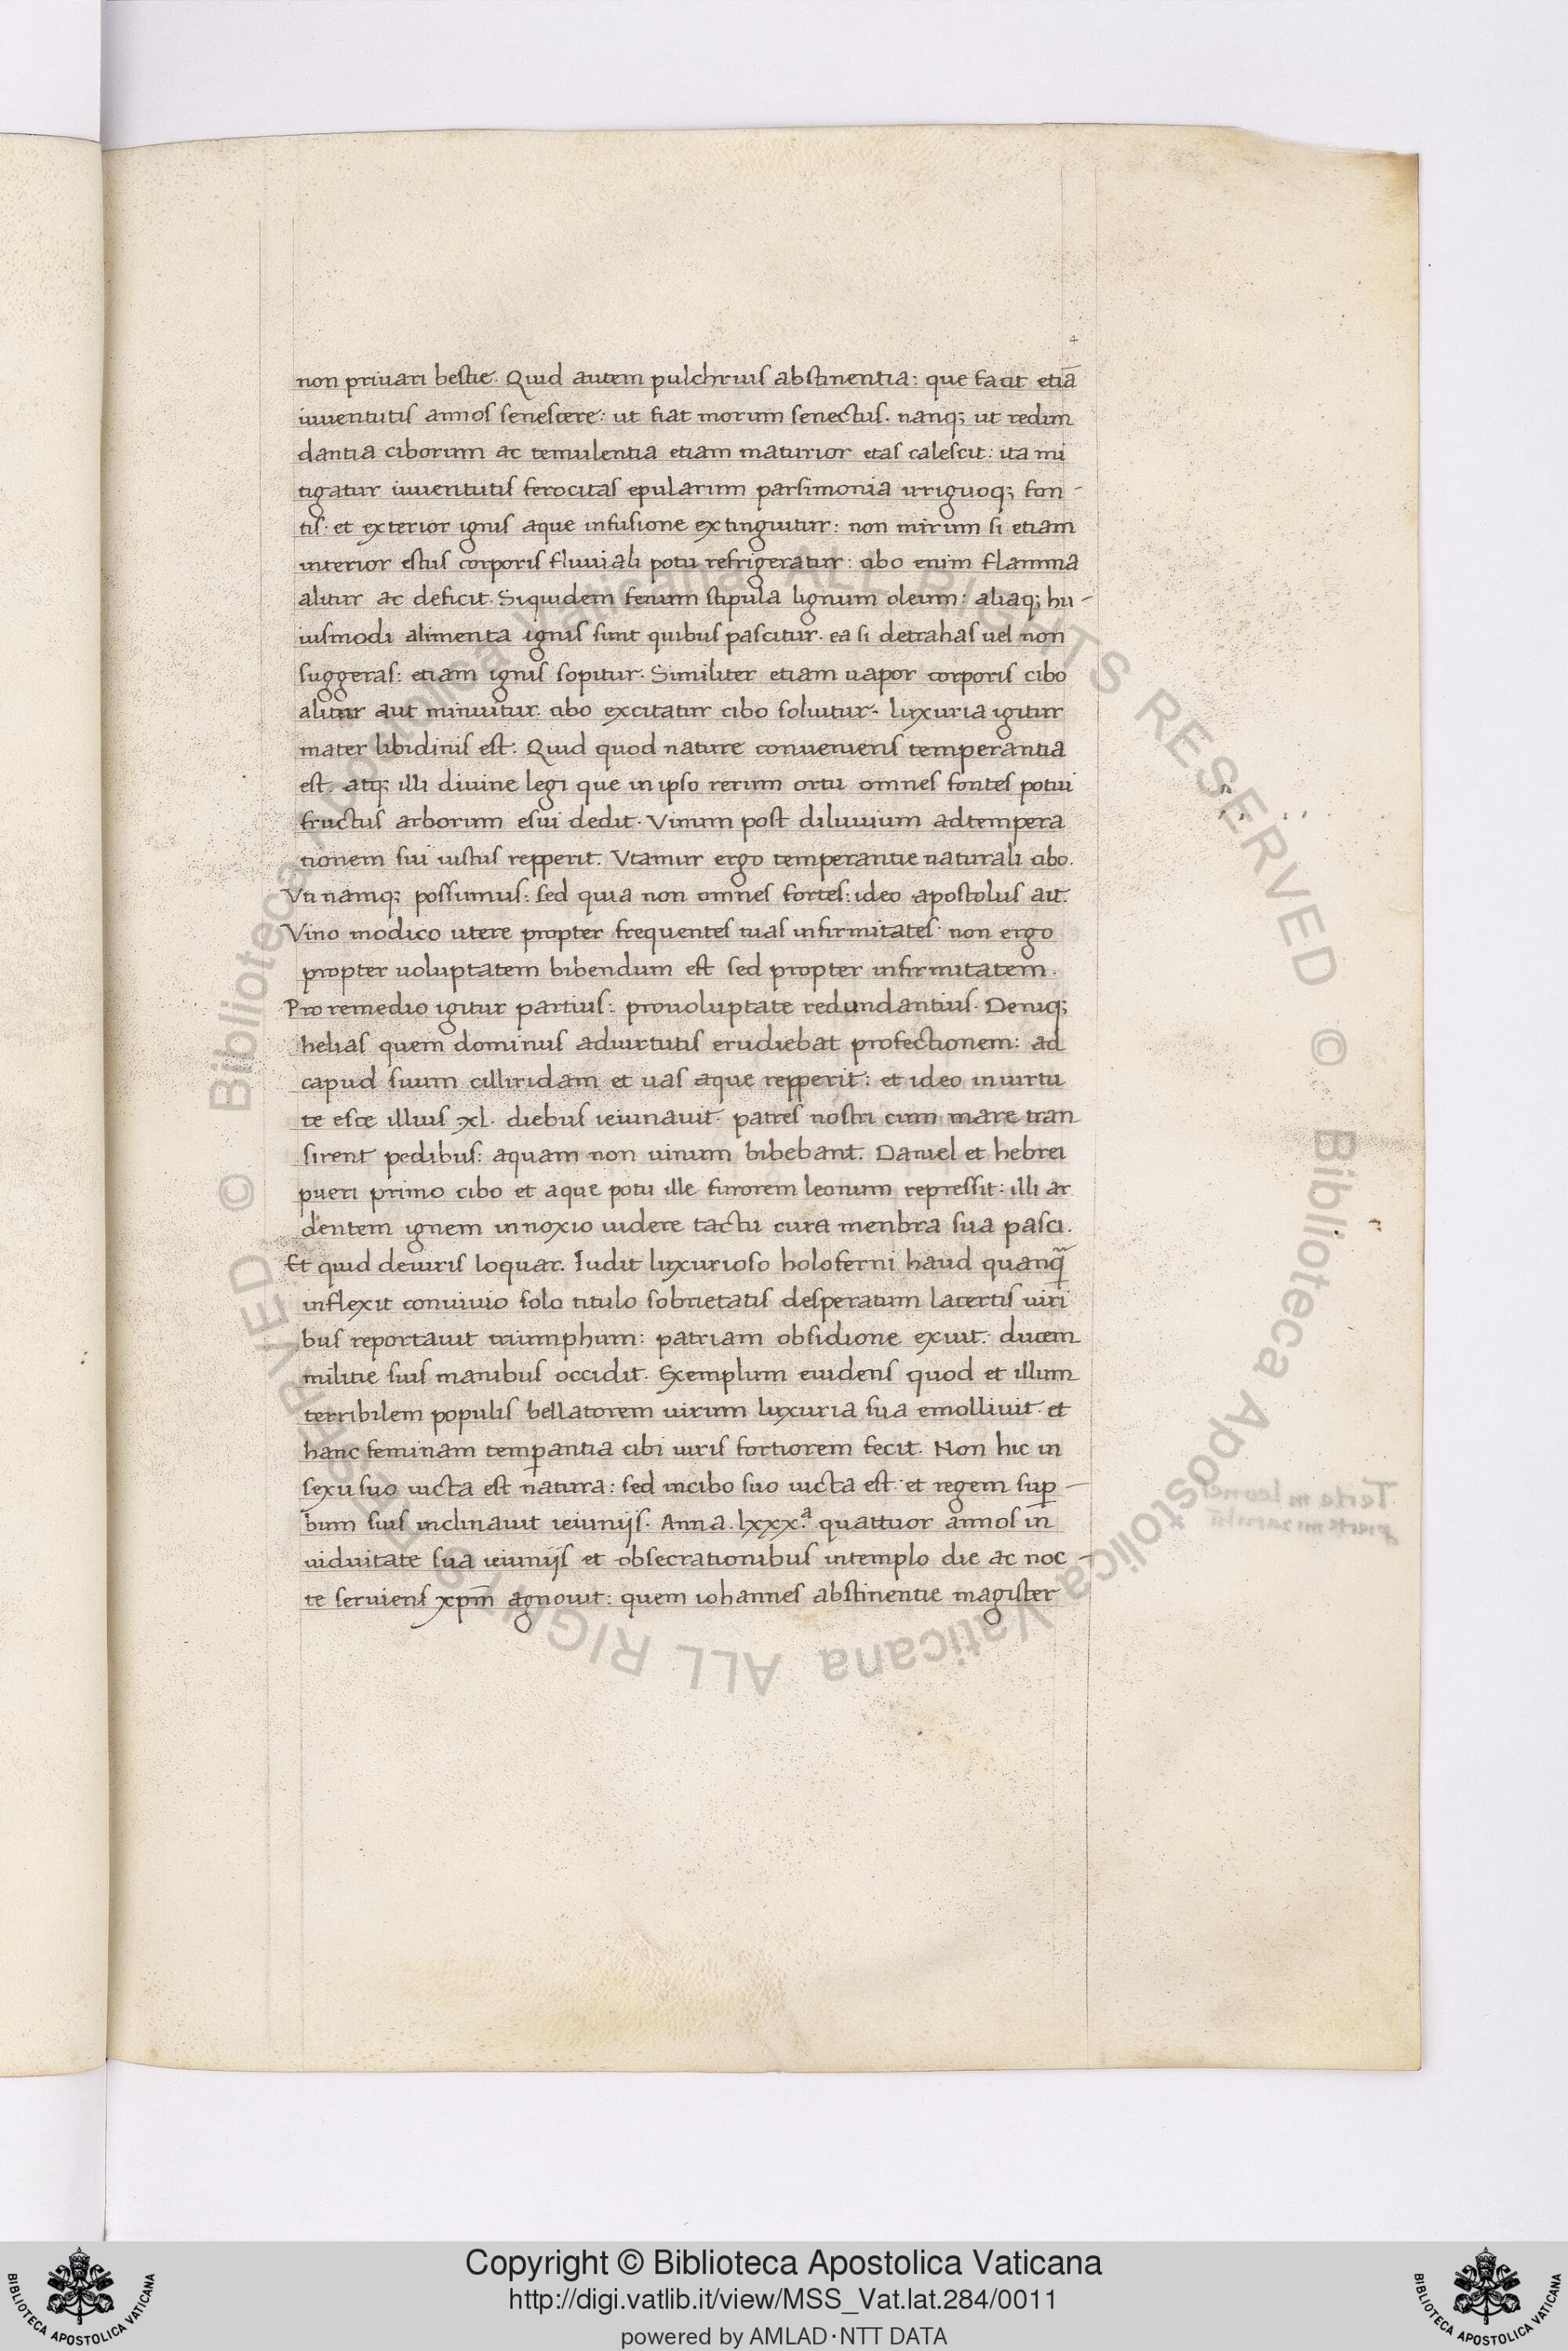 4
non priuari bestie. Quid autem pulchrius abstinentia: que facit etiā
iuuentutis annos senescere: ut fiat morum senectus. nanq; ut redun
dantia ciborum ac temulentia etiam maturior etas calescit: ita mi
tigatur iuuentutis ferocitas epularum parsimonia irriguoq; fon-
tis. et exterior ignis aque infusione extinguitur: non mirum si etiam
interior estus corporis fluuiali potu refrigeratur: cibo enim flamma
alitur ac deficit. Siquidem fenum stipula lignum oleum: aliaq; hu-
iusmodi alimenta ignis sunt quibus pascitur. ea si detrahas uel non
suggeras: etiam ignis sopitur. Similiter etiam uapor corporis cibo
alitur aut minuitur. cibo excitatur cibo soluitur. luxuria igitur
mater libidinis est: Quid quod nature conueniens temperantia
est. atq; illi diuine legi que in ipso rerum ortu omnes fontes potui
fructus arborum esui dedit. Vinum post diluuium adtempera
tionem sui iustus repperit. Vtamur ergo temperantie naturali cibo.
Vti namq; possumus: sed quia non omnes fortes: ideo apostolus ait.
Vino modico utere propter frequentes tuas infirmitates. non ergo
propter uoluptatem bibendum est sed propter infirmitatem.
Pro remedio igitur partius: prouoluptate redundantius. Deniq;
helias quem dominus aduirtutis erudiebat profectionem: ad
capud suum cilliridam et uas aque repperit: et ideo inuirtu
te esce illius xl. diebus ieiunauit. patres nostri cum mare tran
sirent pedibus: aquam non uinum bibebant. Daniel et hebrei
pueri primo cibo et aque potu ille furorem leonum repressit: illi ar
dentem ignem innoxio uidere tactu cura menbra sua pasci.
Et quid deuiris loquar. Iudit luxurioso holoferni haud quanq̄
inflexit conuiuio solo titulo sobrietatis desperatum lacertis uiri
bus reportauit triumphum: patriam obsidione exuit. ducem
militie suis manibus occidit. Exemplum euidens quod et illum
terribilem populis bellatorem uirum luxuria sua emolliuit. et
hanc feminam temꝑantia cibi uiris fortiorem fecit. Non hic in
sexu suo uicta est natura: sed incibo suo uicta est. et regem suꝑ-
bum suis inclinauit ieiunijs. Anna. lxxx.ª quattuor annos in
uiduitate sua ieiunijs et obsecrationibus intemplo die ac noc-
te seruiens xp̄m agnouit: quem iohannes abstinentie magister
Copyright © Biblioteca Apostolica Vaticana
http://digi.vatlib.it/view/MSS_Vat.lat.284/0011
powered by AMLAD·NTT DATA
BIBLIOTECA APOSTOLICA VATICANA
BIBLIOTECA APOSTOLICA VATICANA
© Biblioteca Apostolica Vaticana ALL RIGHTS RESERVED © Biblioteca Apostolica Vaticana ALL RIGHTS RESERVED